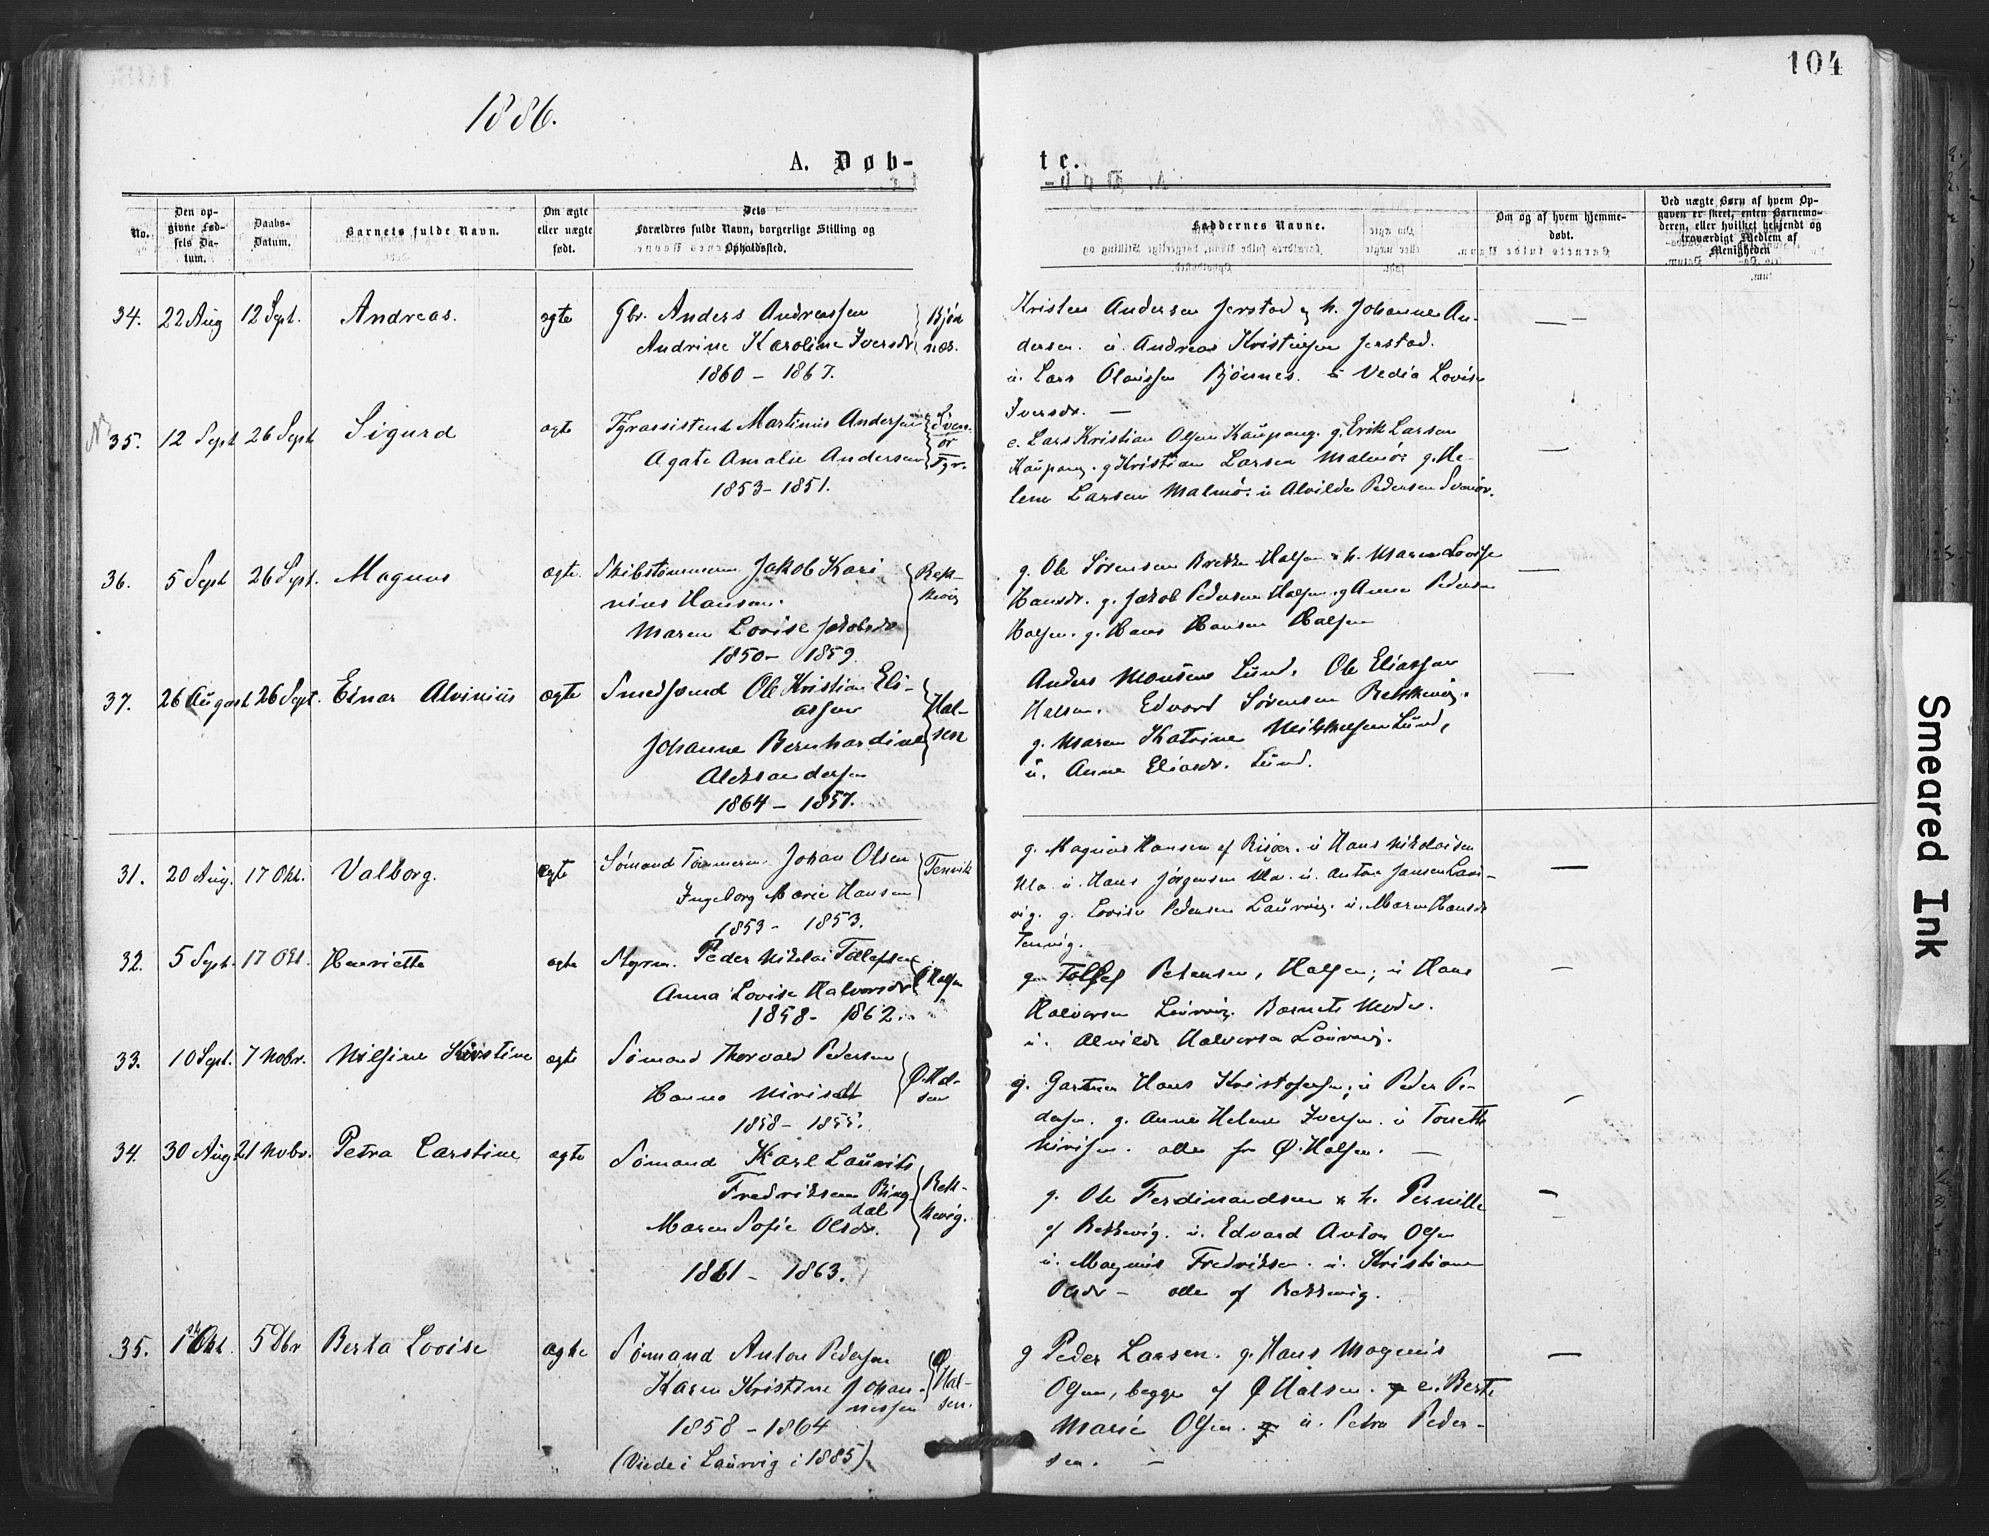 104
1886.
A. Døb-
te.
No.
Den opgivne Fødsels Datum.
Daabs-Datum.
Barnets fulde Navn.
Om ægte eller uægte født.
Dets Forældres fulde Navn, borgerlige Stilling og Opholdssted.
Faddernes Navne.
Om og af hvem hjemmedøbt.
Ved uægte Børn af hvem Opgaven er skeet, enten Barnemoderen, eller hvilket bekjendt og troværdigt Medlem af Menigheden
34. 22 Aug 12 Sept. Andreas. ægte Gbr. Anders Andreassen
Andrine Karoline Iversdr
1860 - 1867.
Kristen Andersen Jerstad og h. Johanne An-
dersen. u Andreas Kristensen Jerstad.
u. Lars Olaussen Bjönnes. u Vedia Lovise
Iversdr. —
35. 12 Sept 26 Sept. Sigurd ægte Fyrassistent Martinus Andersen Svenör Fyr.
Agate Amalie Andersen
1853 - 1851.
e. Lars Kristian Olsen Kaupang. g. Erik Larsen
Kaupang. g Kristian Larsen Malmö. g. He-
lene Larsen Malmö. u Alvilde Pedersen Svenör.
36. 5 Sept 26 Sept. Magnus ægte Skibstömmerm Jakob Kari
nius Hansen.
Maren Lovise Jakobsdr
1850 - 1859.
g. Ole Sörensen Brekke Halsen & h. Maren Lovise
Hansdr. g. Jakob Pedersen Halsen. g Anne Pedersen
Halsen. g. Hans Hansen Halsen
37. 26 August 26 Sept. Einar Alvinius ægte Smedsvend Ole Kristian Eli-
assen
Johanne Bernhardine
Aleksandersen
1864 - 1857.
Halsen
Anders Monsens Lund. Ole Eliassen
Halsen. Edvard Sörensen Rekkevig.
g. Maren Katrine Lund,
u. Anne Eliasdr. Lund.
31. 20 Aug. 17 Okt. Valborg. ægte Sömand Tömmerm. Johan Olsen Tenvik
Ingeborg Marie Hansen
1853 - 1853.
g. Magnus Hansen af Risöer. u Hans Nikolaisen
Ula. u. Hans Jörgensen Ula. u. Anton Jansen Laur-
vig. g. Lovise Pedersen Laurvig. u. Maren Hansdr
Tenvig.
32. 5 Sept. 17 Okt. Henriette ægte Styrm. Peder Nikolai Tollefsen
Anna Lovise Halvorsdr
1858 - 1862.
Ø. Halsen
g Tollef Petersen, Halsen; u Hans
Halvorsen Laurvig. Barnets Moder.
u. Alvilde Halvorsen Laurvig.
33. 10 Sept. 7 Nobr. Nilsine Kristine ægte Sömand Thorvald Pedersen
Hanna
1858 - 1855.
Ø. Halsen
g. Gartner Hans Kristofersen; u Peder Pe-
dersen. g. Anne Helene Iversen. u Torette
alle fra Ø. Halsen. —
34. 30 Aug 21 Nobr. Petra Carstine ægte Sömand Karl Laurits
Fredriksen Ringdal
Maren Sofie Olsdr.
1861 - 1863.
Rekkevig.
g. Ole Ferdinandsen & h. Pernille
af Rekkevig. u. Edvard Anton Olsen
u. Magnus Fredriksen. u. Kristiane
Olsdr — alle af Rekkevig.
35. 1ste Okt. 5 Dbr Berta Lovise ægte Sömand Anton Pedersen
Karen Kristine Johan-
nessen
1858 - 1864
(Viede i Laurvig i 1885).
Ø Halsen.
g Peder Larsen. g. Hans Magnus
Olsen, begge af Ø Halsen. e. Berte
Marie Olsen. u. Petra Peder-
sen. —
Smeared Ink